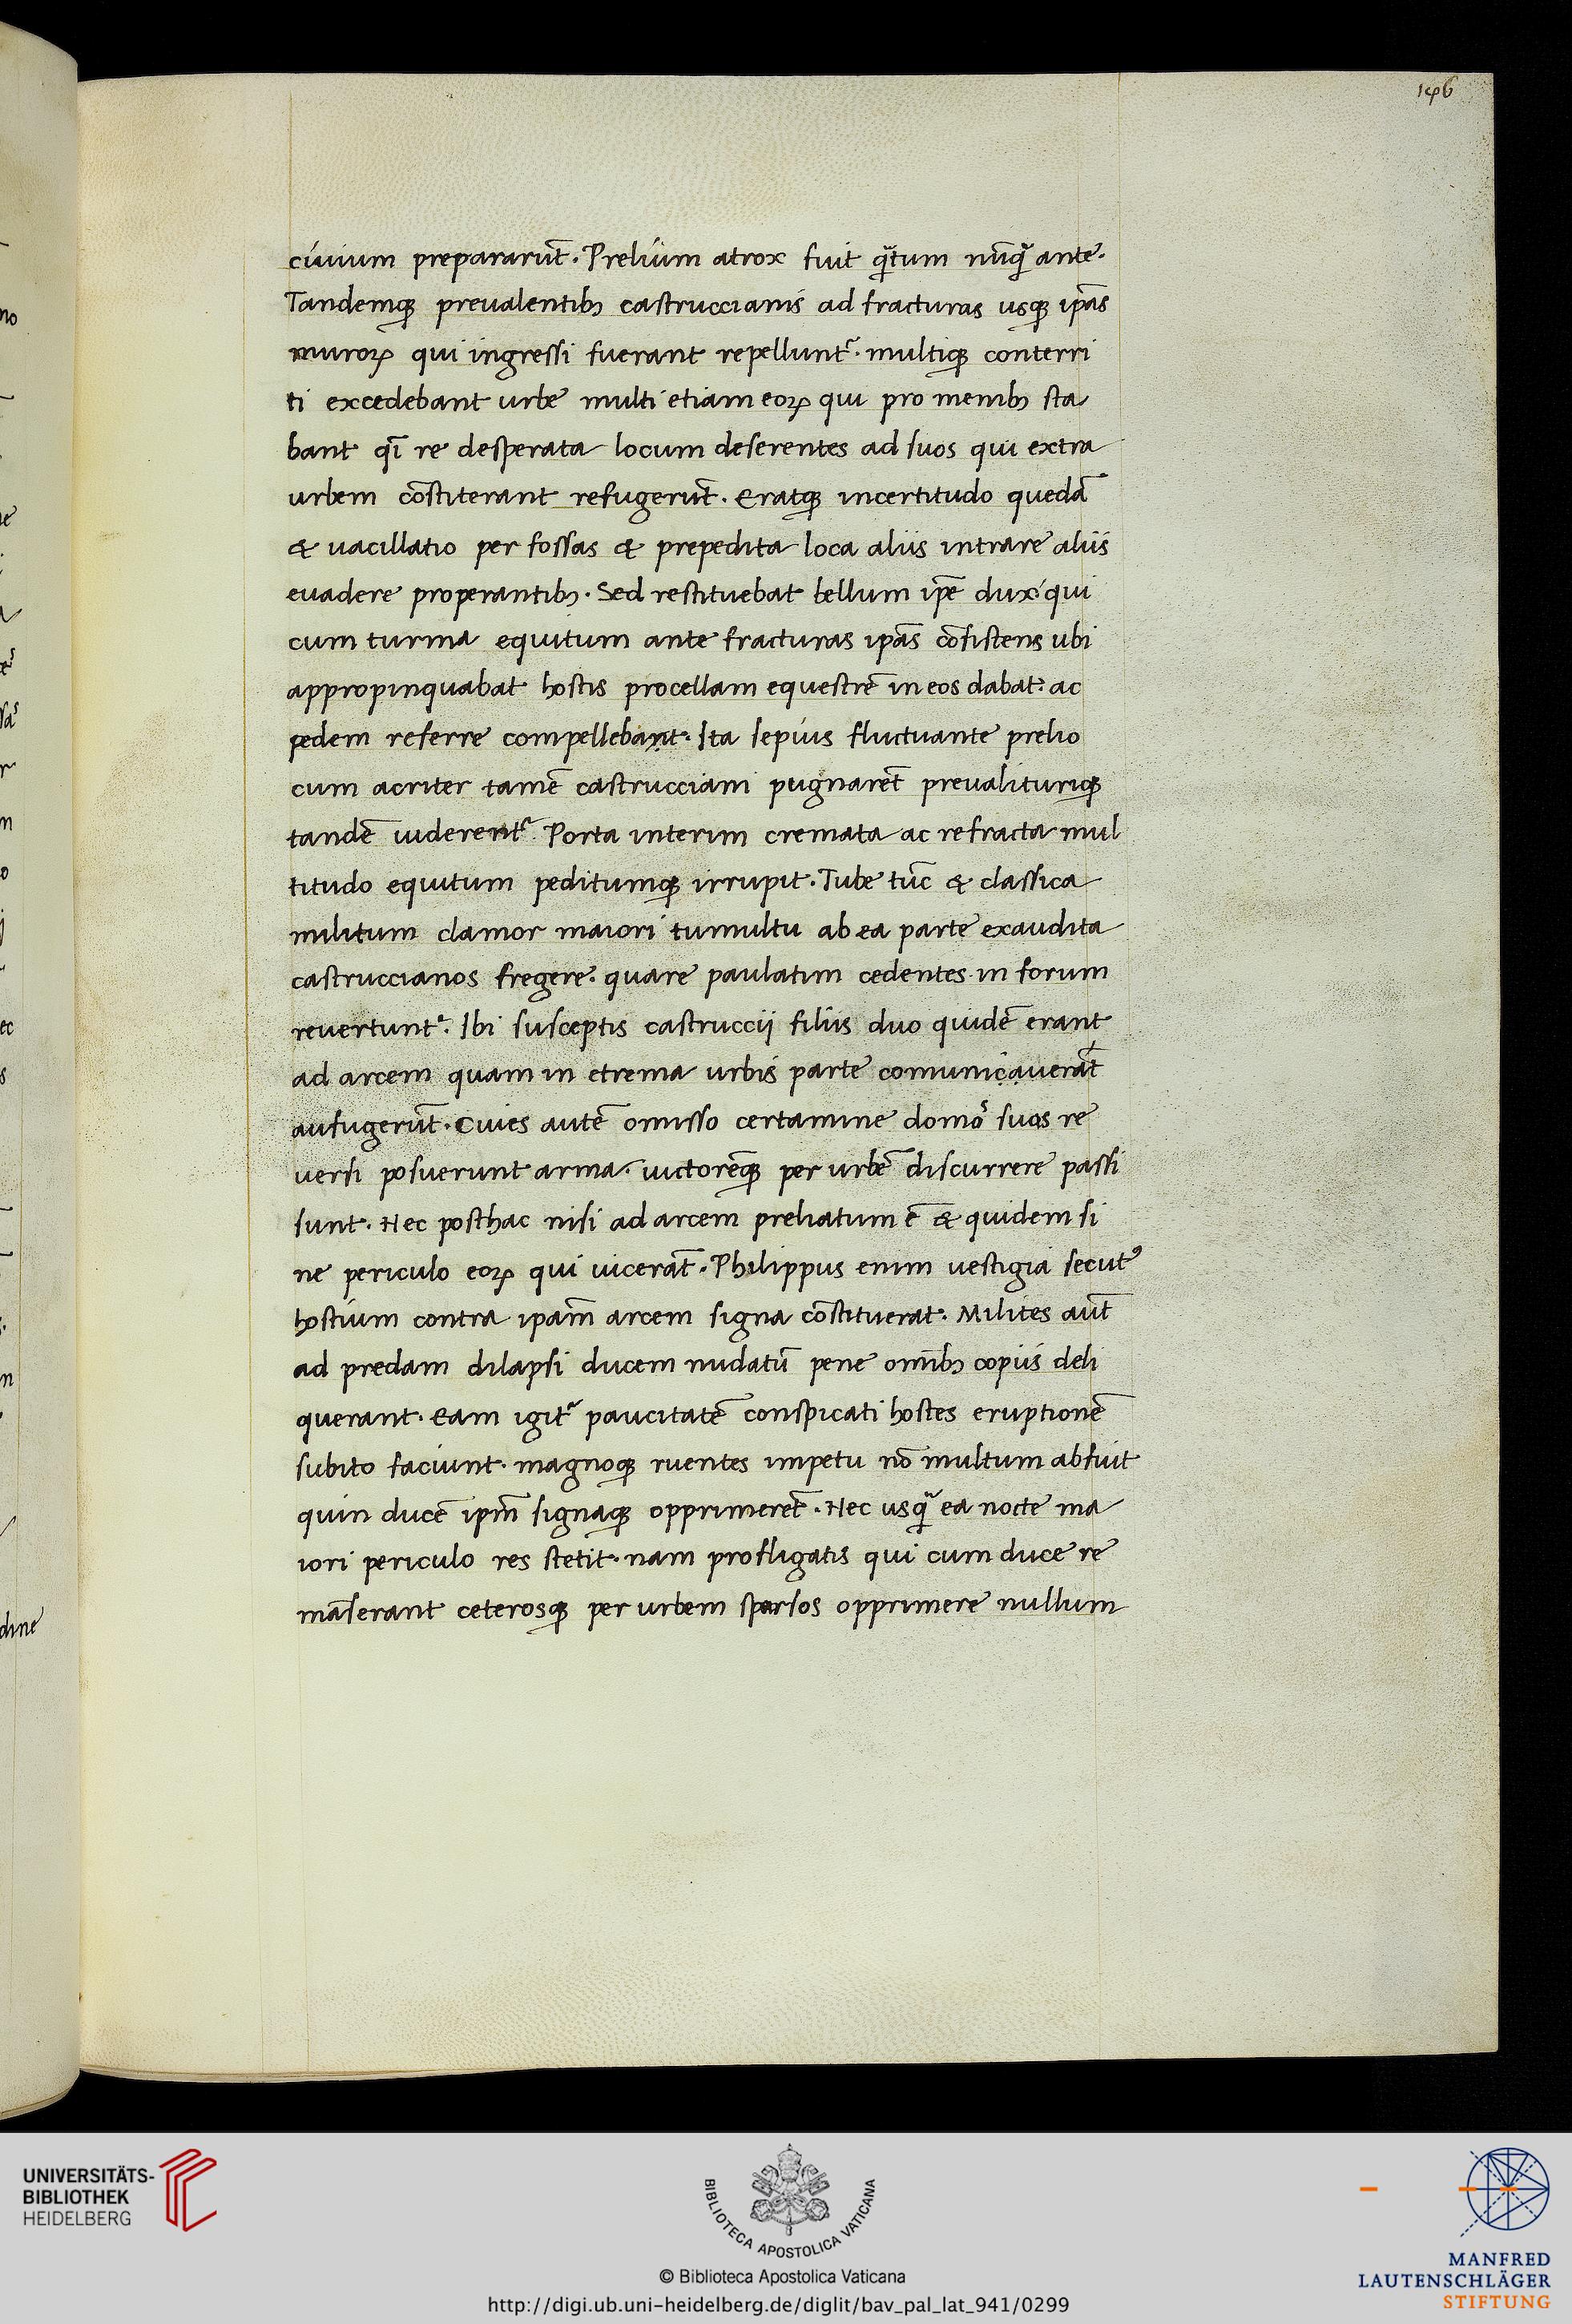 146
ciuium prepararūt. Prelium atrox fuit qͣtum nūqͣ ante.
Tandemqꝫ preualentibꝫ castruccianis ad fracturas usqꝫ ip̄as
muroꝝ qui ingressi fuerant repelluntᷣ. multiqꝫ conterri
ti excedebant urbe multi etiam eoꝝ qui pro menibꝫ sta
bant qī re desperata locum deserentes ad suos qui extra
urbem cōstiterant refugerūt. Eratqꝫ incertitudo quedā
& uacillatio per fossas & prepedita loca aliis intrare aliis
euadere properantibꝫ. Sed restituebat bellum ip̄e dux qui
cum turma equitum ante fracturas ip̄as cōsistens ubi
appropinquabat hostis procellam equestrē in eos dabat: ac
pedem referre compellebant. Ita sepius fluctuante prelio
cum acriter tamē castrucciani pugnarēt preualituriqꝫ
tandē uiderentᷣ. Porta interim cremata ac refracta mul
titudo equitum peditumqꝫ irrupit. Tube tūc & classica
militum clamor maiori tumultu ab ea parte exaudita
castruccianos fregere. quare paulatim cedentes in forum
reuertuntᷣ. Ibi susceptis castruccij filiis duo quidē erant
ad arcem quam in etrema urbis parte comunicauerāt
aufugerūt. Ciues autē omisso certamine domoˢ suas re
uersi posuerunt arma. uictorēqꝫ per urbē discurrere passi
sunt. Nec posthac nisi ad arcem preliatum ē & quidem si
ne periculo eoꝝ qui uicerāt. Philippus enim uestigia secutꝰ
hostium contra ipam̄ arcem signa cōstituerat. Milites aut̄
ad predam dilapsi ducem nudatū pene omībꝫ copiis deli
querant. Eam igitᷣ paucitatē conspicati hostes eruptionē
subito faciunt. magnoqꝫ ruentes impetu nō multum abfuit
quin ducē ipm̄ signaqꝫ opprimerēt. Nec usqͣ ea nocte ma
iori periculo res stetit. nam profligatis qui cum duce re
māserant ceterosqꝫ per urbem sparsos opprimere nullum
no
dine
UNIVERSITÄTS-
BIBLIOTHEK
HEIDELBERG
BIBLIOTECA APOSTOLICA VATICANA
© Biblioteca Apostolica Vaticana
http://digi.ub.uni-heidelberg.de/diglit/bav_pal_lat_941/0299
MANFRED
LAUTENSCHLÄGER
STIFTUNG